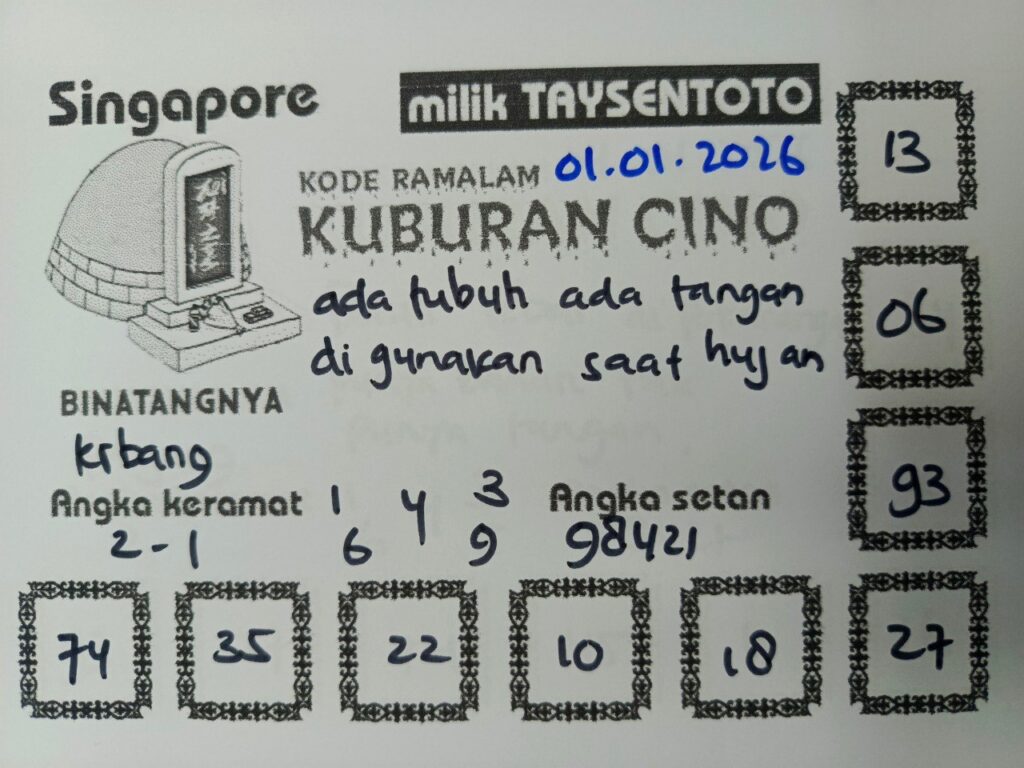 Singapore
milik TAYSENTOTO
KODE RAMALAM 01.01.2026
KUBURAN CINO
ada tubuh ada tangan
di gunakan saat hujan
BINATANGNYA
krbang
Angka keramat
2-1
1 4 3
6 9
Angka setan
98421
13
06
93
74 35 22 10 18 27